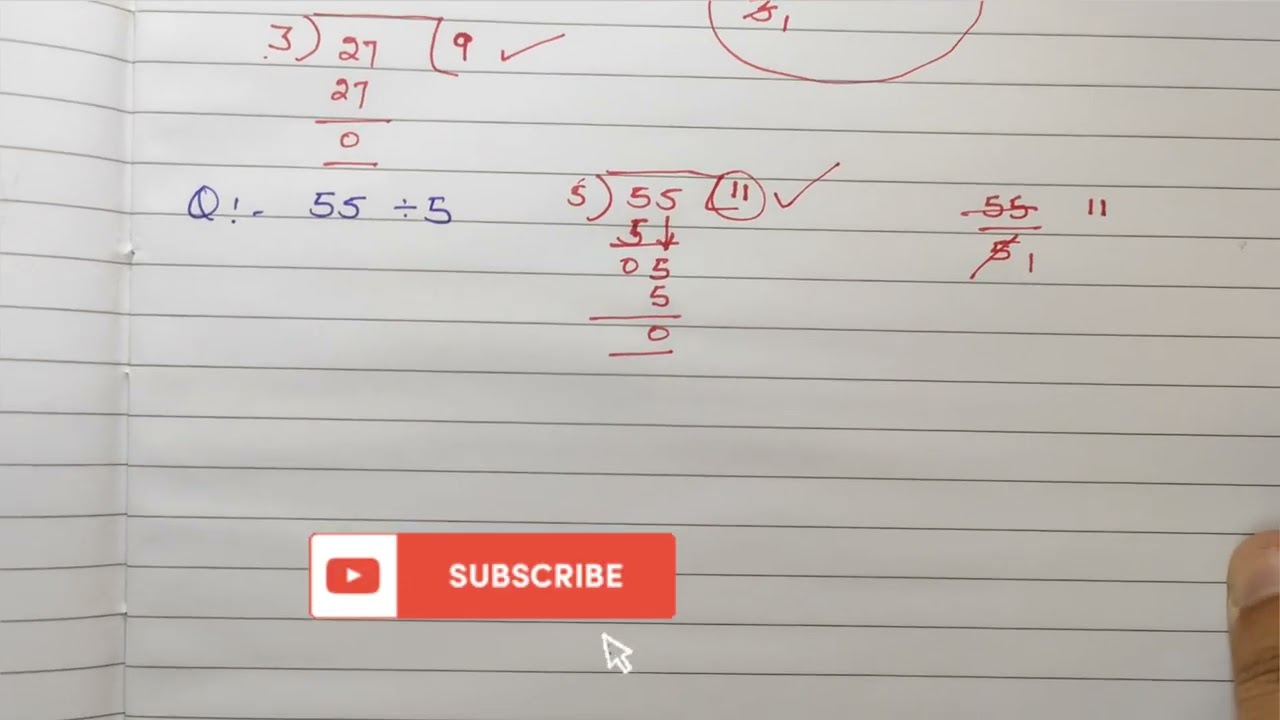 3) 27 (9 ✓
27
0
3 1
Q:- 55 ÷ 5
5) 55 (11 ✓
5 ↓
05
5
0
55 11
5 1
SUBSCRIBE